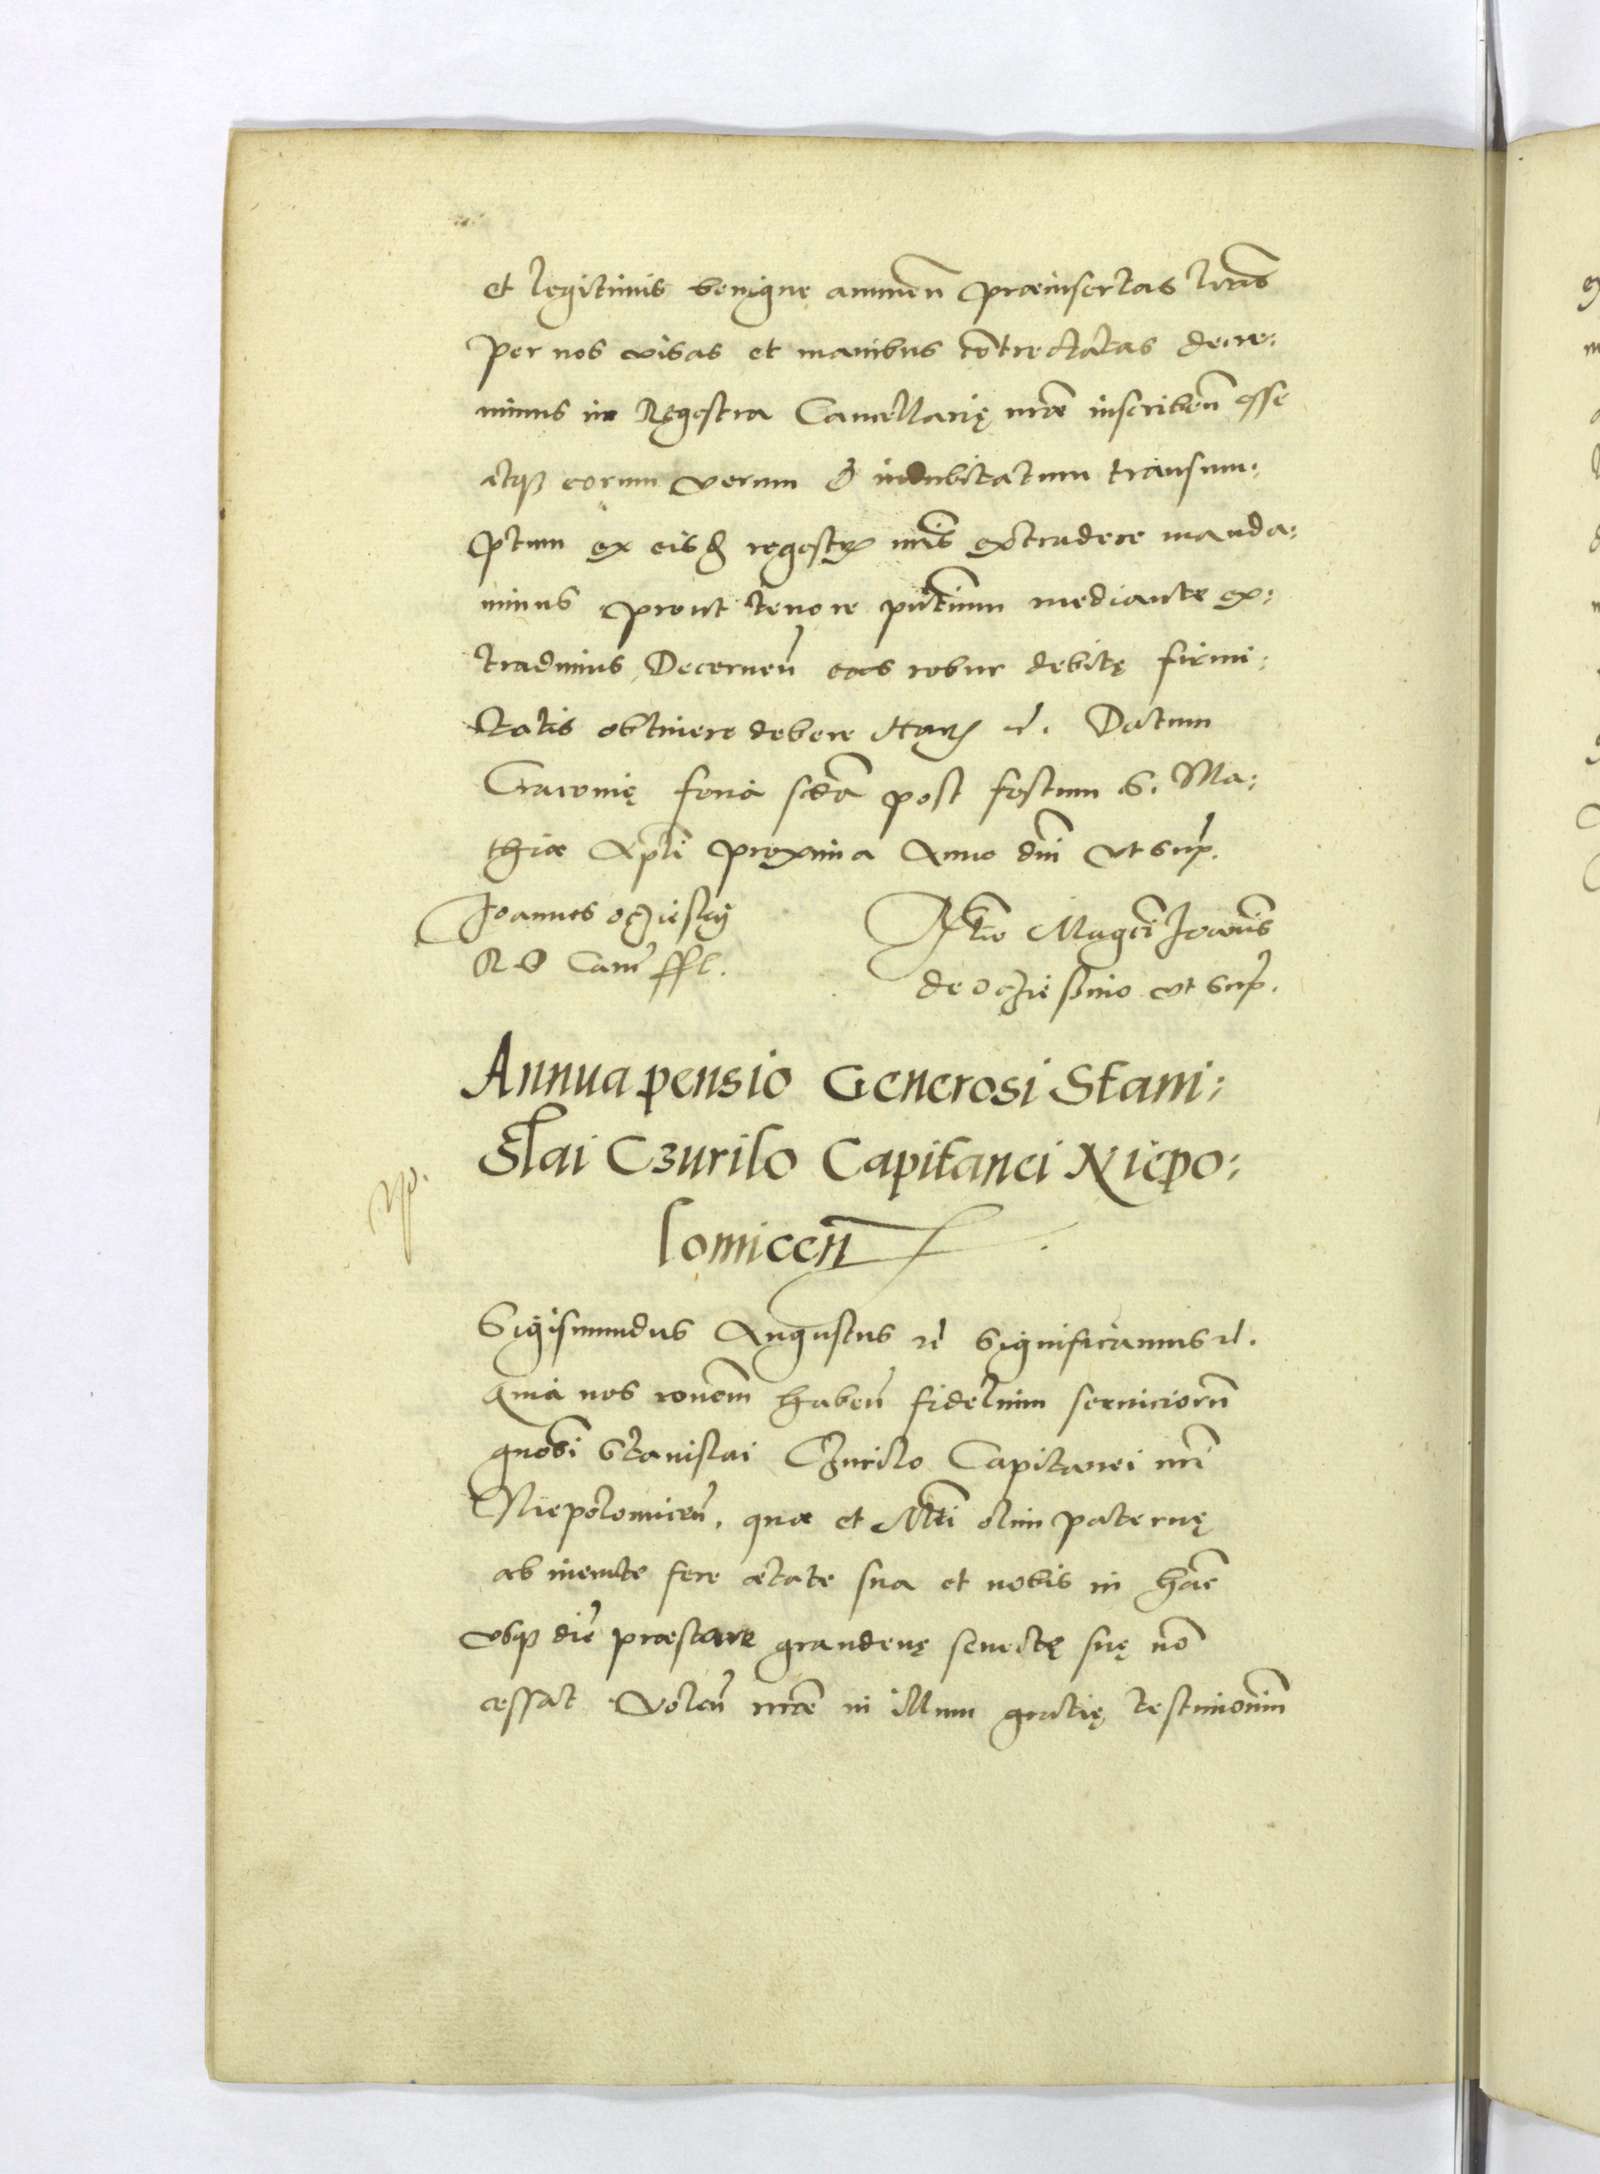 et legitimis benigne annuen̄ præinsertas lr̄as
per nos visas et manibus cōtrectatas decre:
uimus in Regestra Cancellarię nr̄æ inscriben̄ esse
atq3 eorum verum & indubitatum transum:
ptum ex eisd regestr nr̄is extradere manda:
uimus prout tenore pn̄tium mediante ex:
tradimus, Decernen̄ eas robur debitę firmi:
tatis obtinere debere Har 2c. Datum
Cracouię feria scd̄a post festum S. Ma:
thiæ Apl̄i proxima Anno dn̄i vt supr.
Joannes oczieski
R P Canc ssst.
Rel̄io Magci Joan̄is
de oczieschino vt supr.
Annua pensio Generosi Stani:
slai Czurilo Capitanei Niepo:
lomicen̄
Sigismundus Augustus 2c Significamus 2c.
quia nos rōnem haben̄ fidelium seruiciorū
gnosi Stanislai Czurilo Capitanei nr̄i
Niepolomicen̄, quæ et Mtti olim paternę
ab ineunte fere ætate sua et nobis in hāc
vsq3 diē præstare grandeuę senectę suę nō
cessat Volen̄ nr̄æ in illum gratię testimoniū